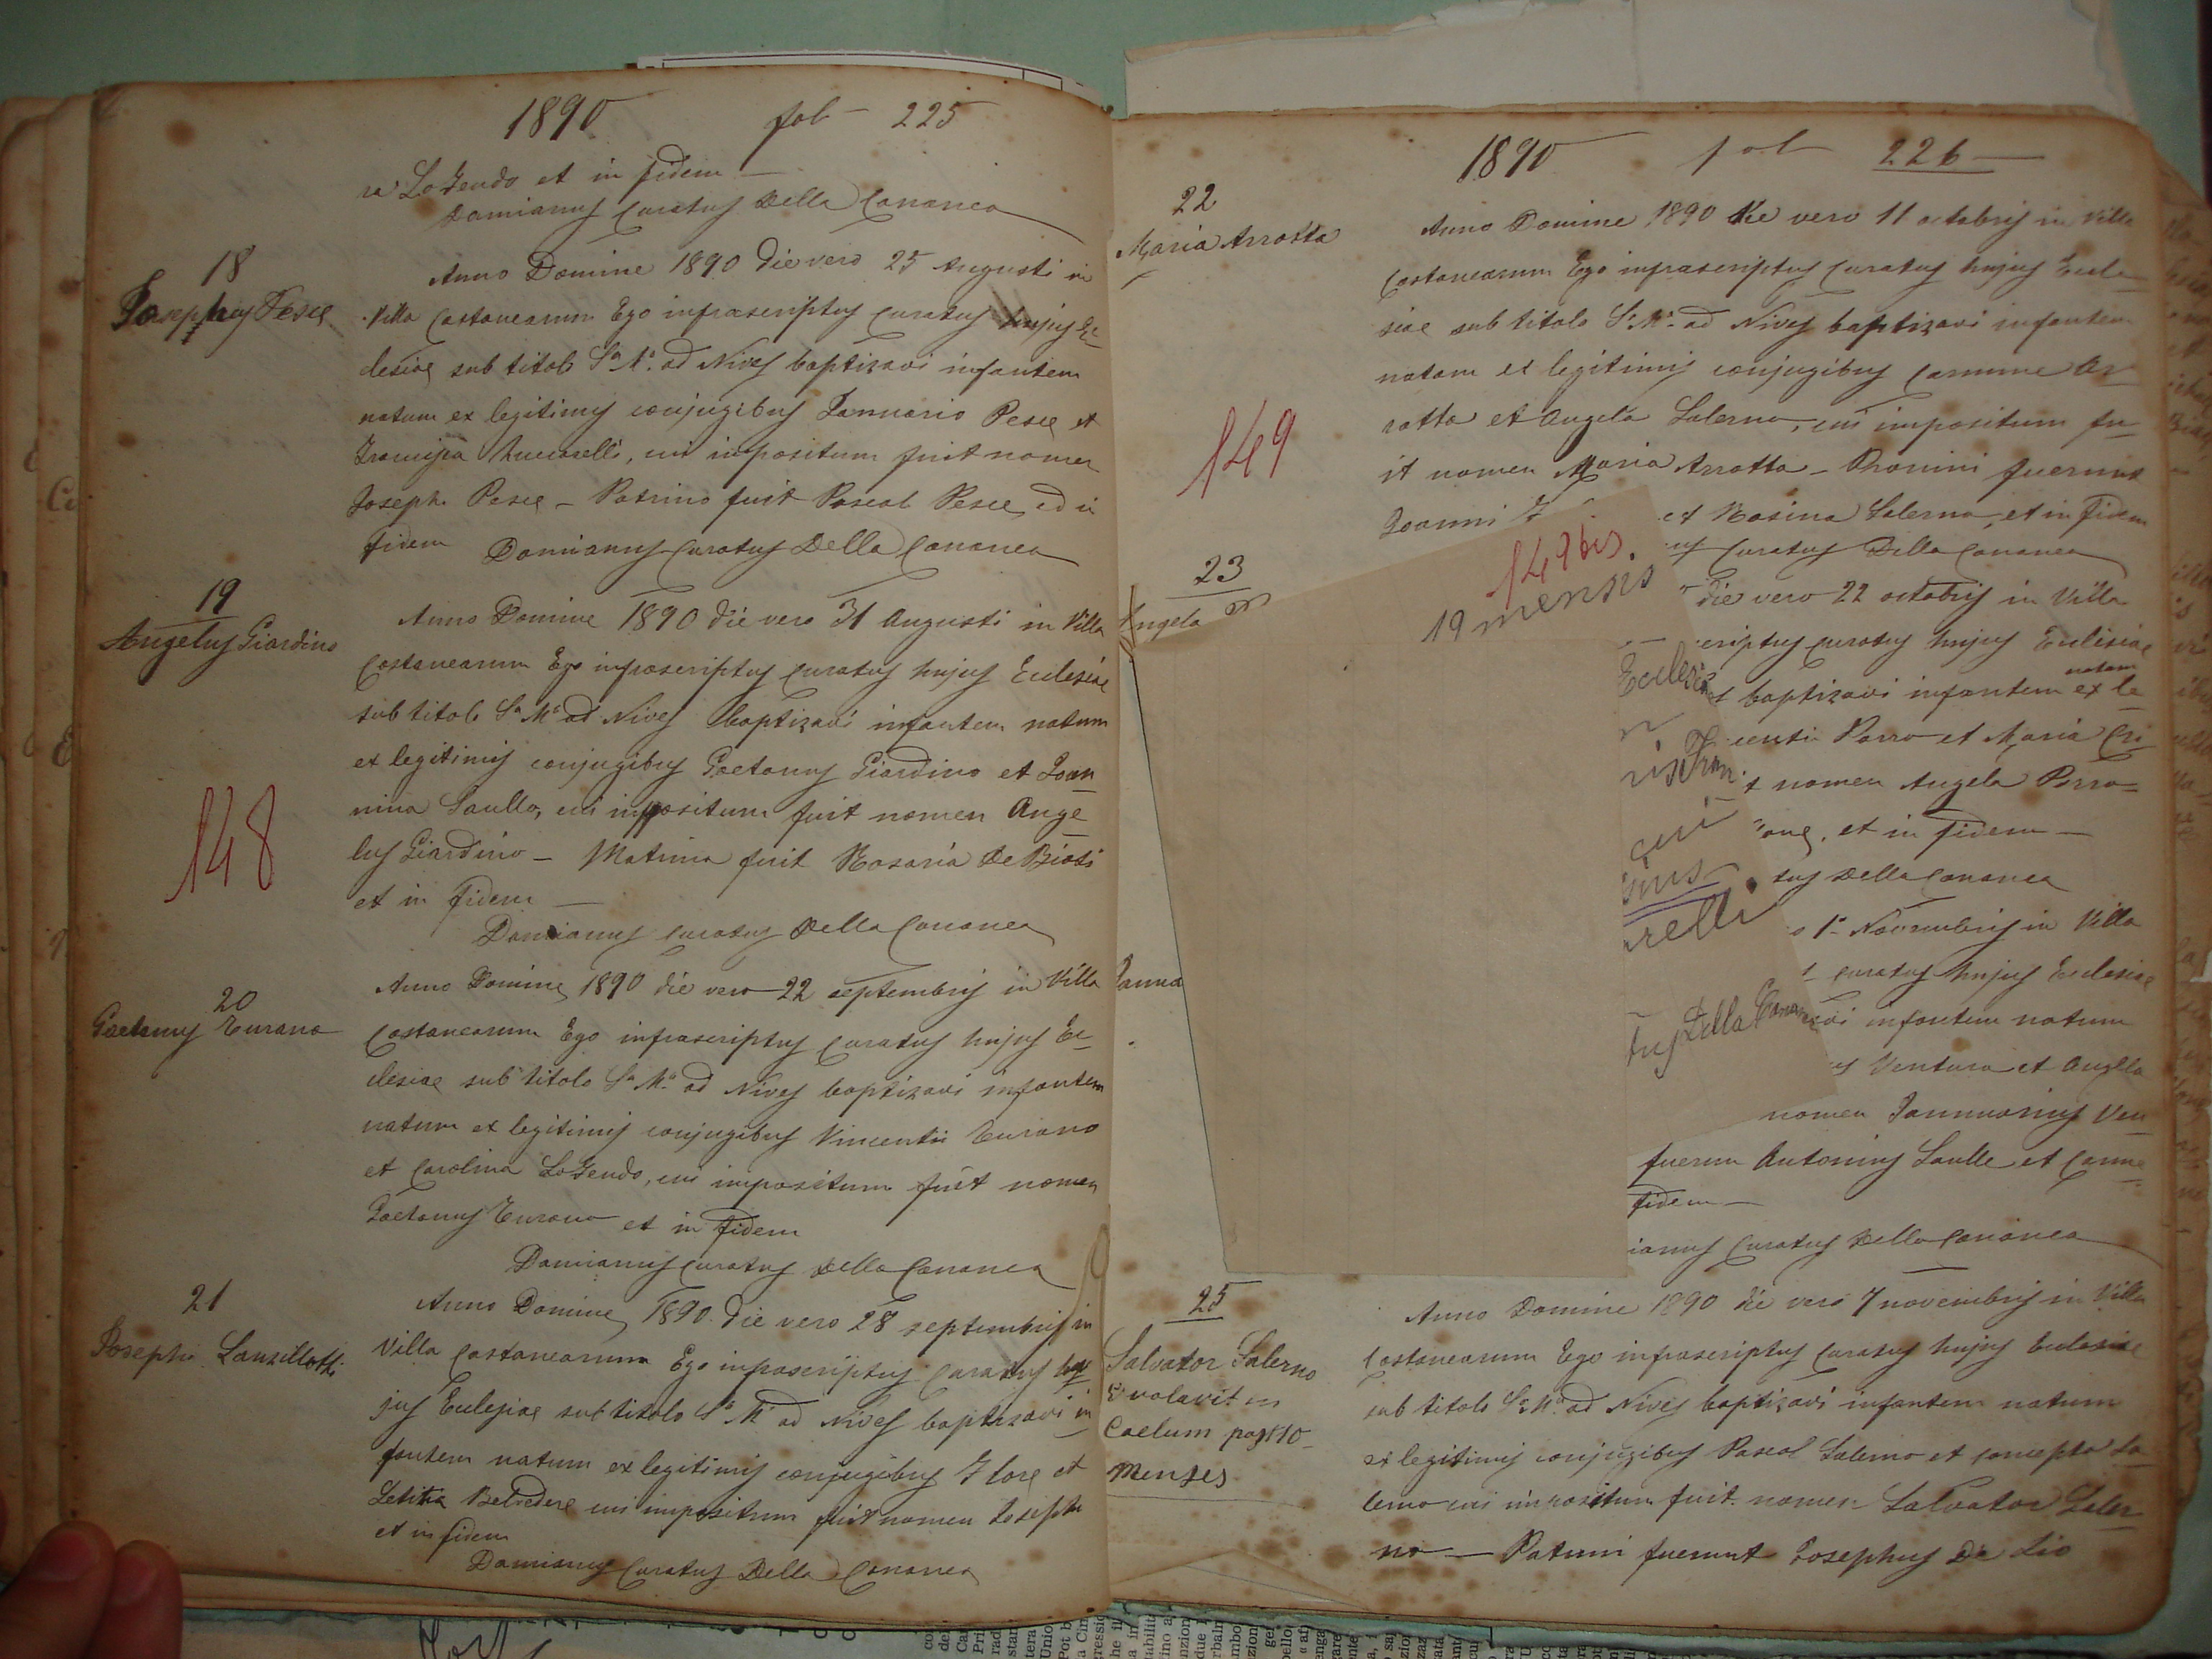 1890 fol - 225
ra LoZendo et in fidem -
Damianus Curatus Della Cananea
18
Josephus Pesce
Anno Domine 1890 die vero 25 Augusti in
Villa Castanearum Ego infrascriptus Curatus hujus Ec-
clesiae sub titolo Sa Ma ad Nives baptizavi infantem
natum ex legitimis conjugibus Januario Pesce et
cui impositum fuit nomen
Joseph Pesce - Patrino fuit Pascal Pesce, ed in
fidem Damianus Curatus Della Cananea
19
Angelus Giardino
Anno Domine 1890 die vero 31 Augusti in Villa
Castanearum Ego infrascriptus Curatus hujus Eclesiae
sub titolo Sa Ma ad Nives baptizavi infantem natum
ex legitimis conjugibus Gaetanus Giardino et Joan
nina Saullo, cui impositum fuit nomen Ange
lus Giardino - Matrina fuit Rosaria De Biasi
et in fidem -
148
Damianus Curatus Della Cananea
20
Gaetanus Turano
Anno Domine 1890 die vero 22 septembris in Villa
Castanearum Ego infrascriptus Curatus hujus Ec-
clesiae sub titolo Sa Ma ad Nives baptizavi infantem
natum ex legitimis conjugibus Vincentii Turano
et Carolina LoZendo, cui impositum fuit nomen
Gaetanus Turano et in fidem
Damianus Curatus Della Cananea
21
Joseph Lanzillotti
Anno Domine 1890 die vero 28 septembris in
Villa Castanearum Ego infrascriptus Curatus hu
jus Eclesiae sub titolo Sa Ma ad Nives baptizavi in
fantem natum ex legitimis conjugibus Flore et
Letitia Belvedere cui impositum fuit nomen Joseph
et in fidem
Damianus Curatus Della Cananea
1890 fol 226 -
22
Maria Arrotta
Anno Domine 1890 die vero 11 octobris in Villa
Castanearum Ego infrascriptus Curatus hujus Ecle
siae sub titolo Sa Ma ad Nives baptizavi infantem
natam ex legitimis conjugibus Carmine Ar-
rotta et Angela Salerno, cui impositum fu-
it nomen Maria Arrotta - fuerunt
Joanni et Rosina Salerno, et in fidem
149
Curatus Della Cananea
149 bis.
19 mensis
23
Angela
die vero 22 octobris in Villa
criptus Curatus hujus Eclesiae
Ecclesi
baptizavi infantem natam ex le
centi Porro et Maria Cri
nomen Angela Porro
cui
one, et in fidem -
tus Della Cananea
relli
1a Novembris in Villa
Curatus hujus Eclesiae
Janua
tus Della Cananea
infantem natum
us Ventura et Angela
nomen Januarius Ven
fuerun Antonius Saulle et Carme
fidem -
ianus Curatus Della Cananea
25
Salvator Salerno
Evolavit in
Caelum post 10
menses
Anno Domine 1890 die vero 7 novembris in Villa
Castanearum Ego infrascriptus Curatus hujus Eclesiae
sub titolo Sa Ma ad Nives baptizavi infantem natum
ex legitimis conjugibus Pascal Salerno et Concepta Sa
lerno cui impositum fuit nomen Salvator Saler
no - Patrini fuerunt Josephus De Lio